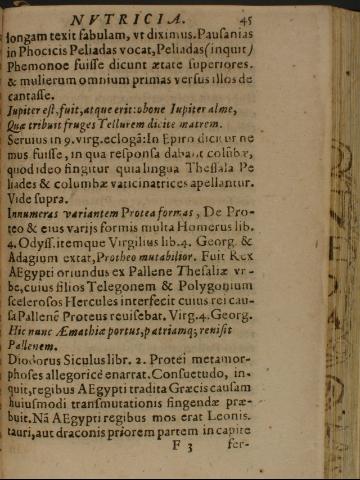 NVTRICIA. 45
longam texit fabulam, vt diximus. Pausanias
in Phocicis Peliadas vocat, Peliadas (inquit)
Phemonoe fuisse dicunt ætate superiores.
& mulierum omnium primas versus illos de
cantasse.
Iupiter est, fuit, atque erit: ô bone Iupiter alme,
Quæ tribuit fruges Tellurem dicite matrem.
Seruius in 9. virg. ecloga: In Epiro dicitur ne
mus fuisse, in qua responsa dabant colũbæ,
quod ideo fingitur quia lingua Thessala Pe
liades & columbæ vaticinatrices apellantur.
Vide supra.
Innumeras variantem Protea formas, De Pro-
teo & eius varijs formis multa Homerus lib.
4. Odyss. itemque Virgilius lib. 4. Georg. &
Adagium extat, Protheo mutabilior. Fuit Rex
AEgypti oriundus ex Pallene Thesaliæ vr-
be, cuius filios Telegonem & Polygonium
scelerosos Hercules interfecit cuius rei cau-
sa Pallenẽ Proteus reuisebat. Virg. 4. Georg.
Hic nunc Æmathiæ portus, patriamq; reuisit
Pallenem.
Diodorus Siculus libr. 2. Protei metamor-
phoses allegoricè enarrat. Consuetudo, in-
quit, regibus AEgypti tradita Græcis causam
huiusmodi transmutationis fingendæ præ-
buit. Nã AEgypti regibus mos erat Leonis.
tauri, aut draconis priorem partem in capite
F 3 fer-